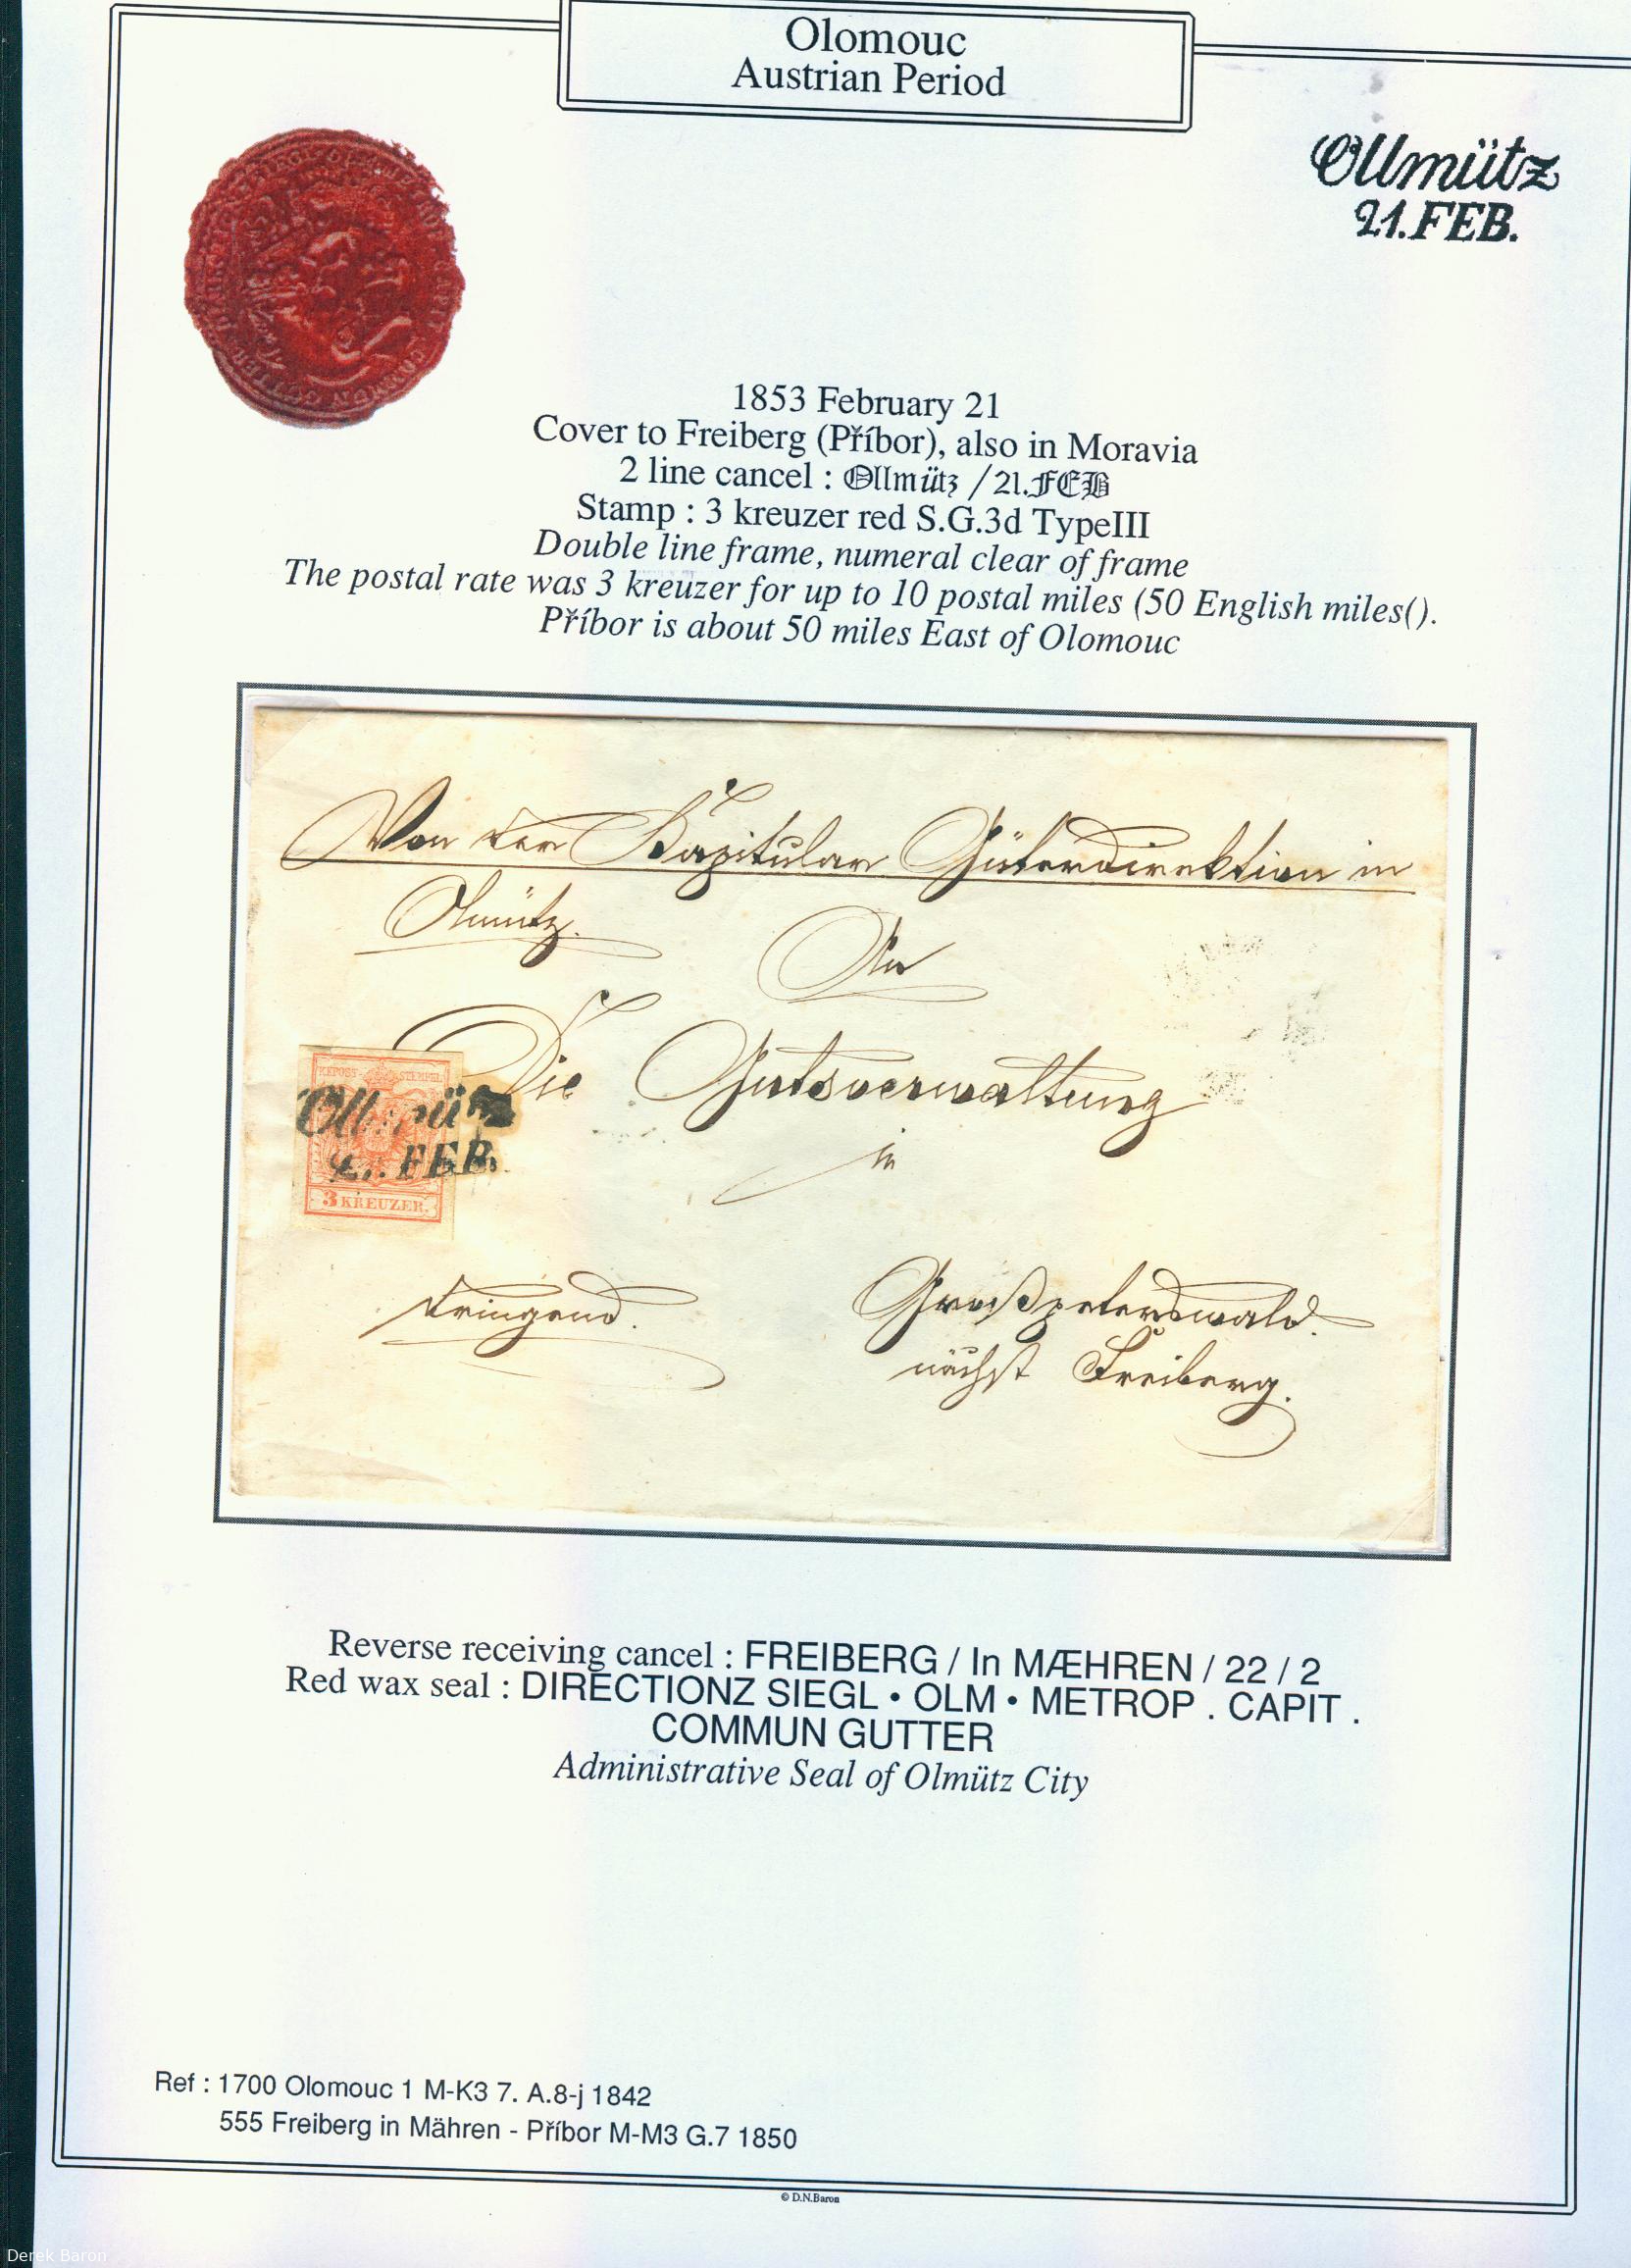 Olomouc
Austrian Period
Ollmütz
21.FEB.
1853 February 21
Cover to Freiberg (Příbor), also in Moravia
2 line cancel : Ollmütz / 21.FEB
Stamp : 3 kreuzer red S.G.3d TypeIII
Double line frame, numeral clear of frame
The postal rate was 3 kreuzer for up to 10 postal miles (50 English miles().
Příbor is about 50 miles East of Olomouc
Von der Kapitular Güterdirektion in
Olmütz.
An
Die Gutsverwaltung
in
KKPOST-STEMPEL
Ollmütz
21. FEB.
3 KREUZER.
dringend.
Großpeterswald.
nächst Freiberg.
Reverse receiving cancel : FREIBERG / In MÆHREN / 22 / 2
Red wax seal : DIRECTIONZ SIEGL • OLM • METROP . CAPIT .
COMMUN GUTTER
Administrative Seal of Olmütz City
Ref : 1700 Olomouc 1 M-K3 7. A.8-j 1842
555 Freiberg in Mähren - Příbor M-M3 G.7 1850
© D.N.Baron
Derek Baron